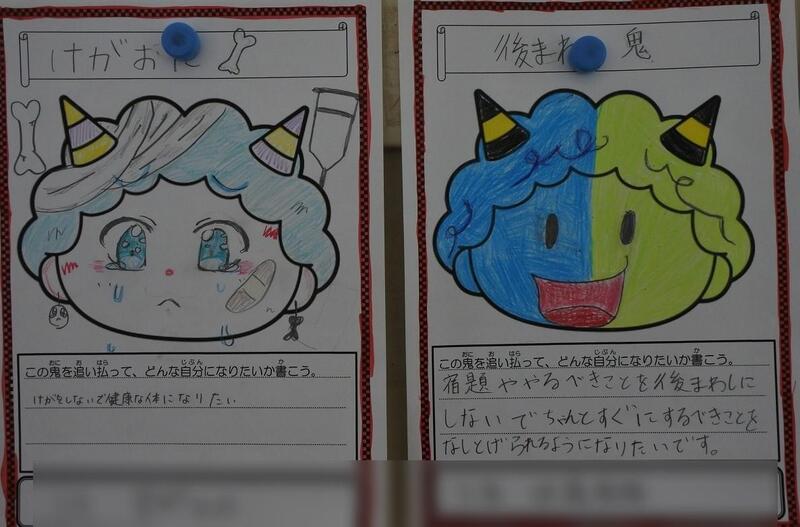 けがおに
この鬼を追い払って、どんな自分になりたいか書こう。
けがをしないで健康な体になりたい
後まわ 鬼
この鬼を追い払って、どんな自分になりたいか書こう。
宿題ややるべきことを後まわしに
しないでちゃんとすぐにするべきことを
なしとげられるようになりたいです。